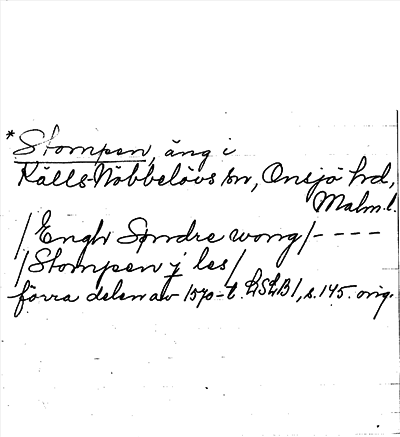 *Stompen, äng i
Källs-Nöbbelövs sn, Onsjö hd,
Malm.l.
/Engh Søndre wong/- - - -
/Stompen j les/
förra delen av 1570-t. LSLB1, s.145. orig.